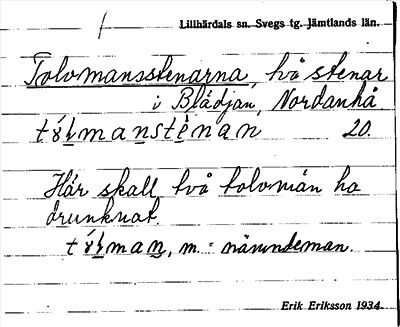 Lillhärdals sn. Svegs tg. Jämtlands län.
Tolvmansstenarna, två stenar
i Blädjan, Nordanhå
20.
Här skall två tolvmän ha
drunknat.
m. = nämndeman.
Erik Eriksson 1934.